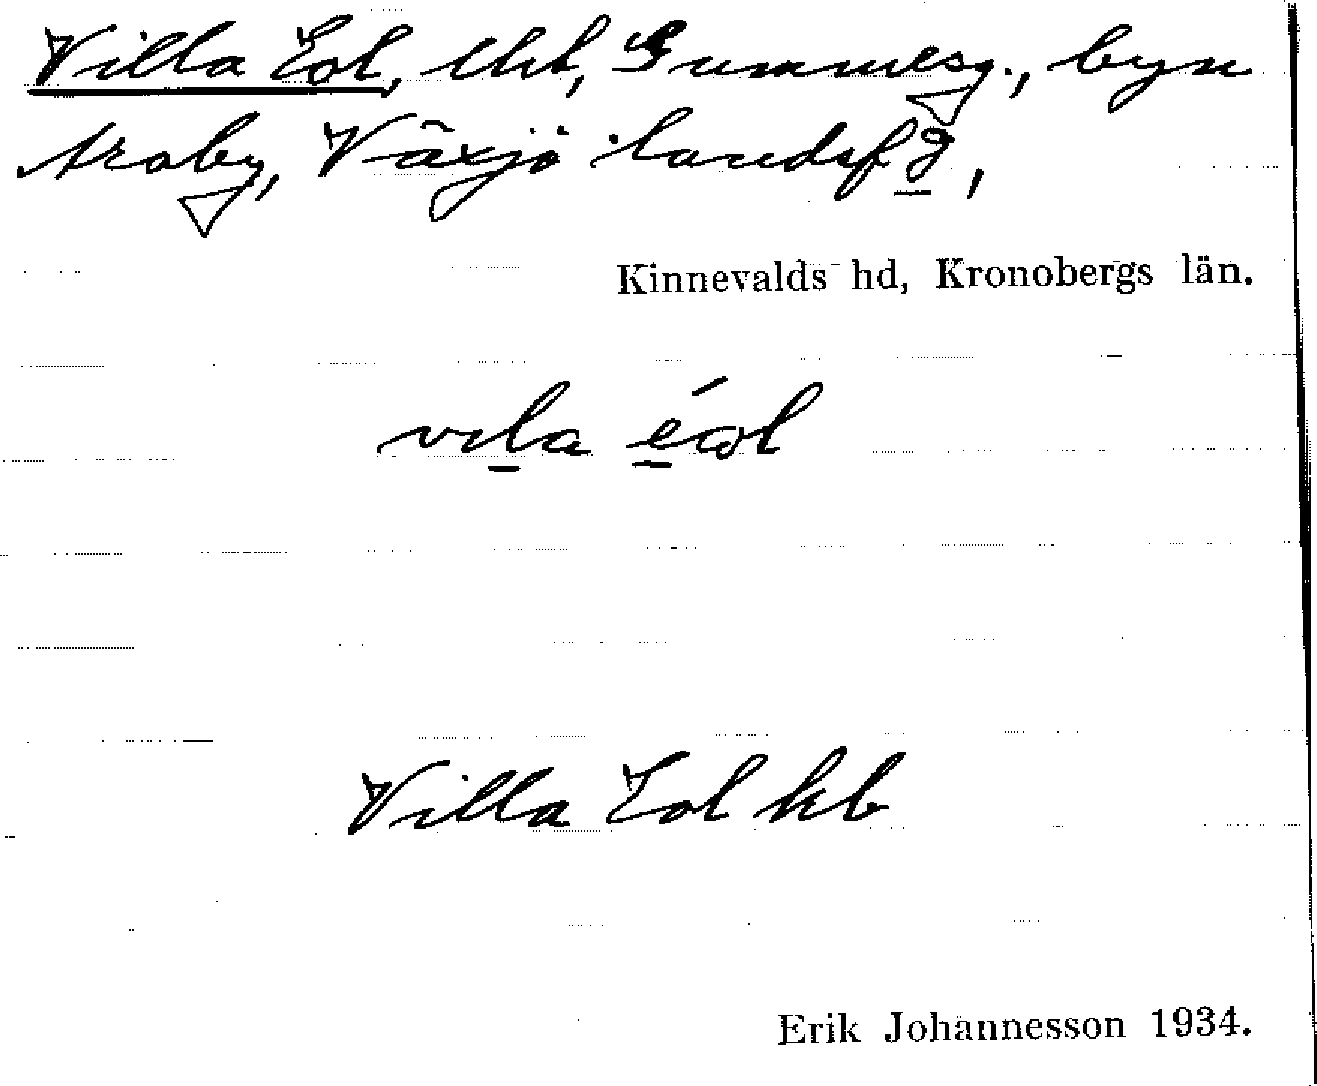 Villa Eol, lht, Gummesg., byn
Araby, Växjö landsf g,
Kinnevalds hd, Kronobergs län.
vila éol
Villa Eol hb
Erik Johannesson 1934.